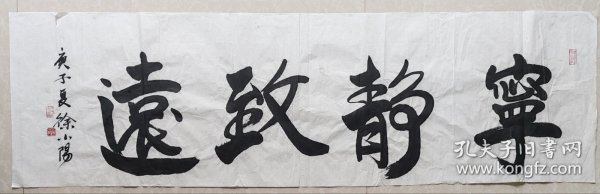 寧靜致遠
庚子夏徐小陽
孔夫子旧书网
www.kongfz.com